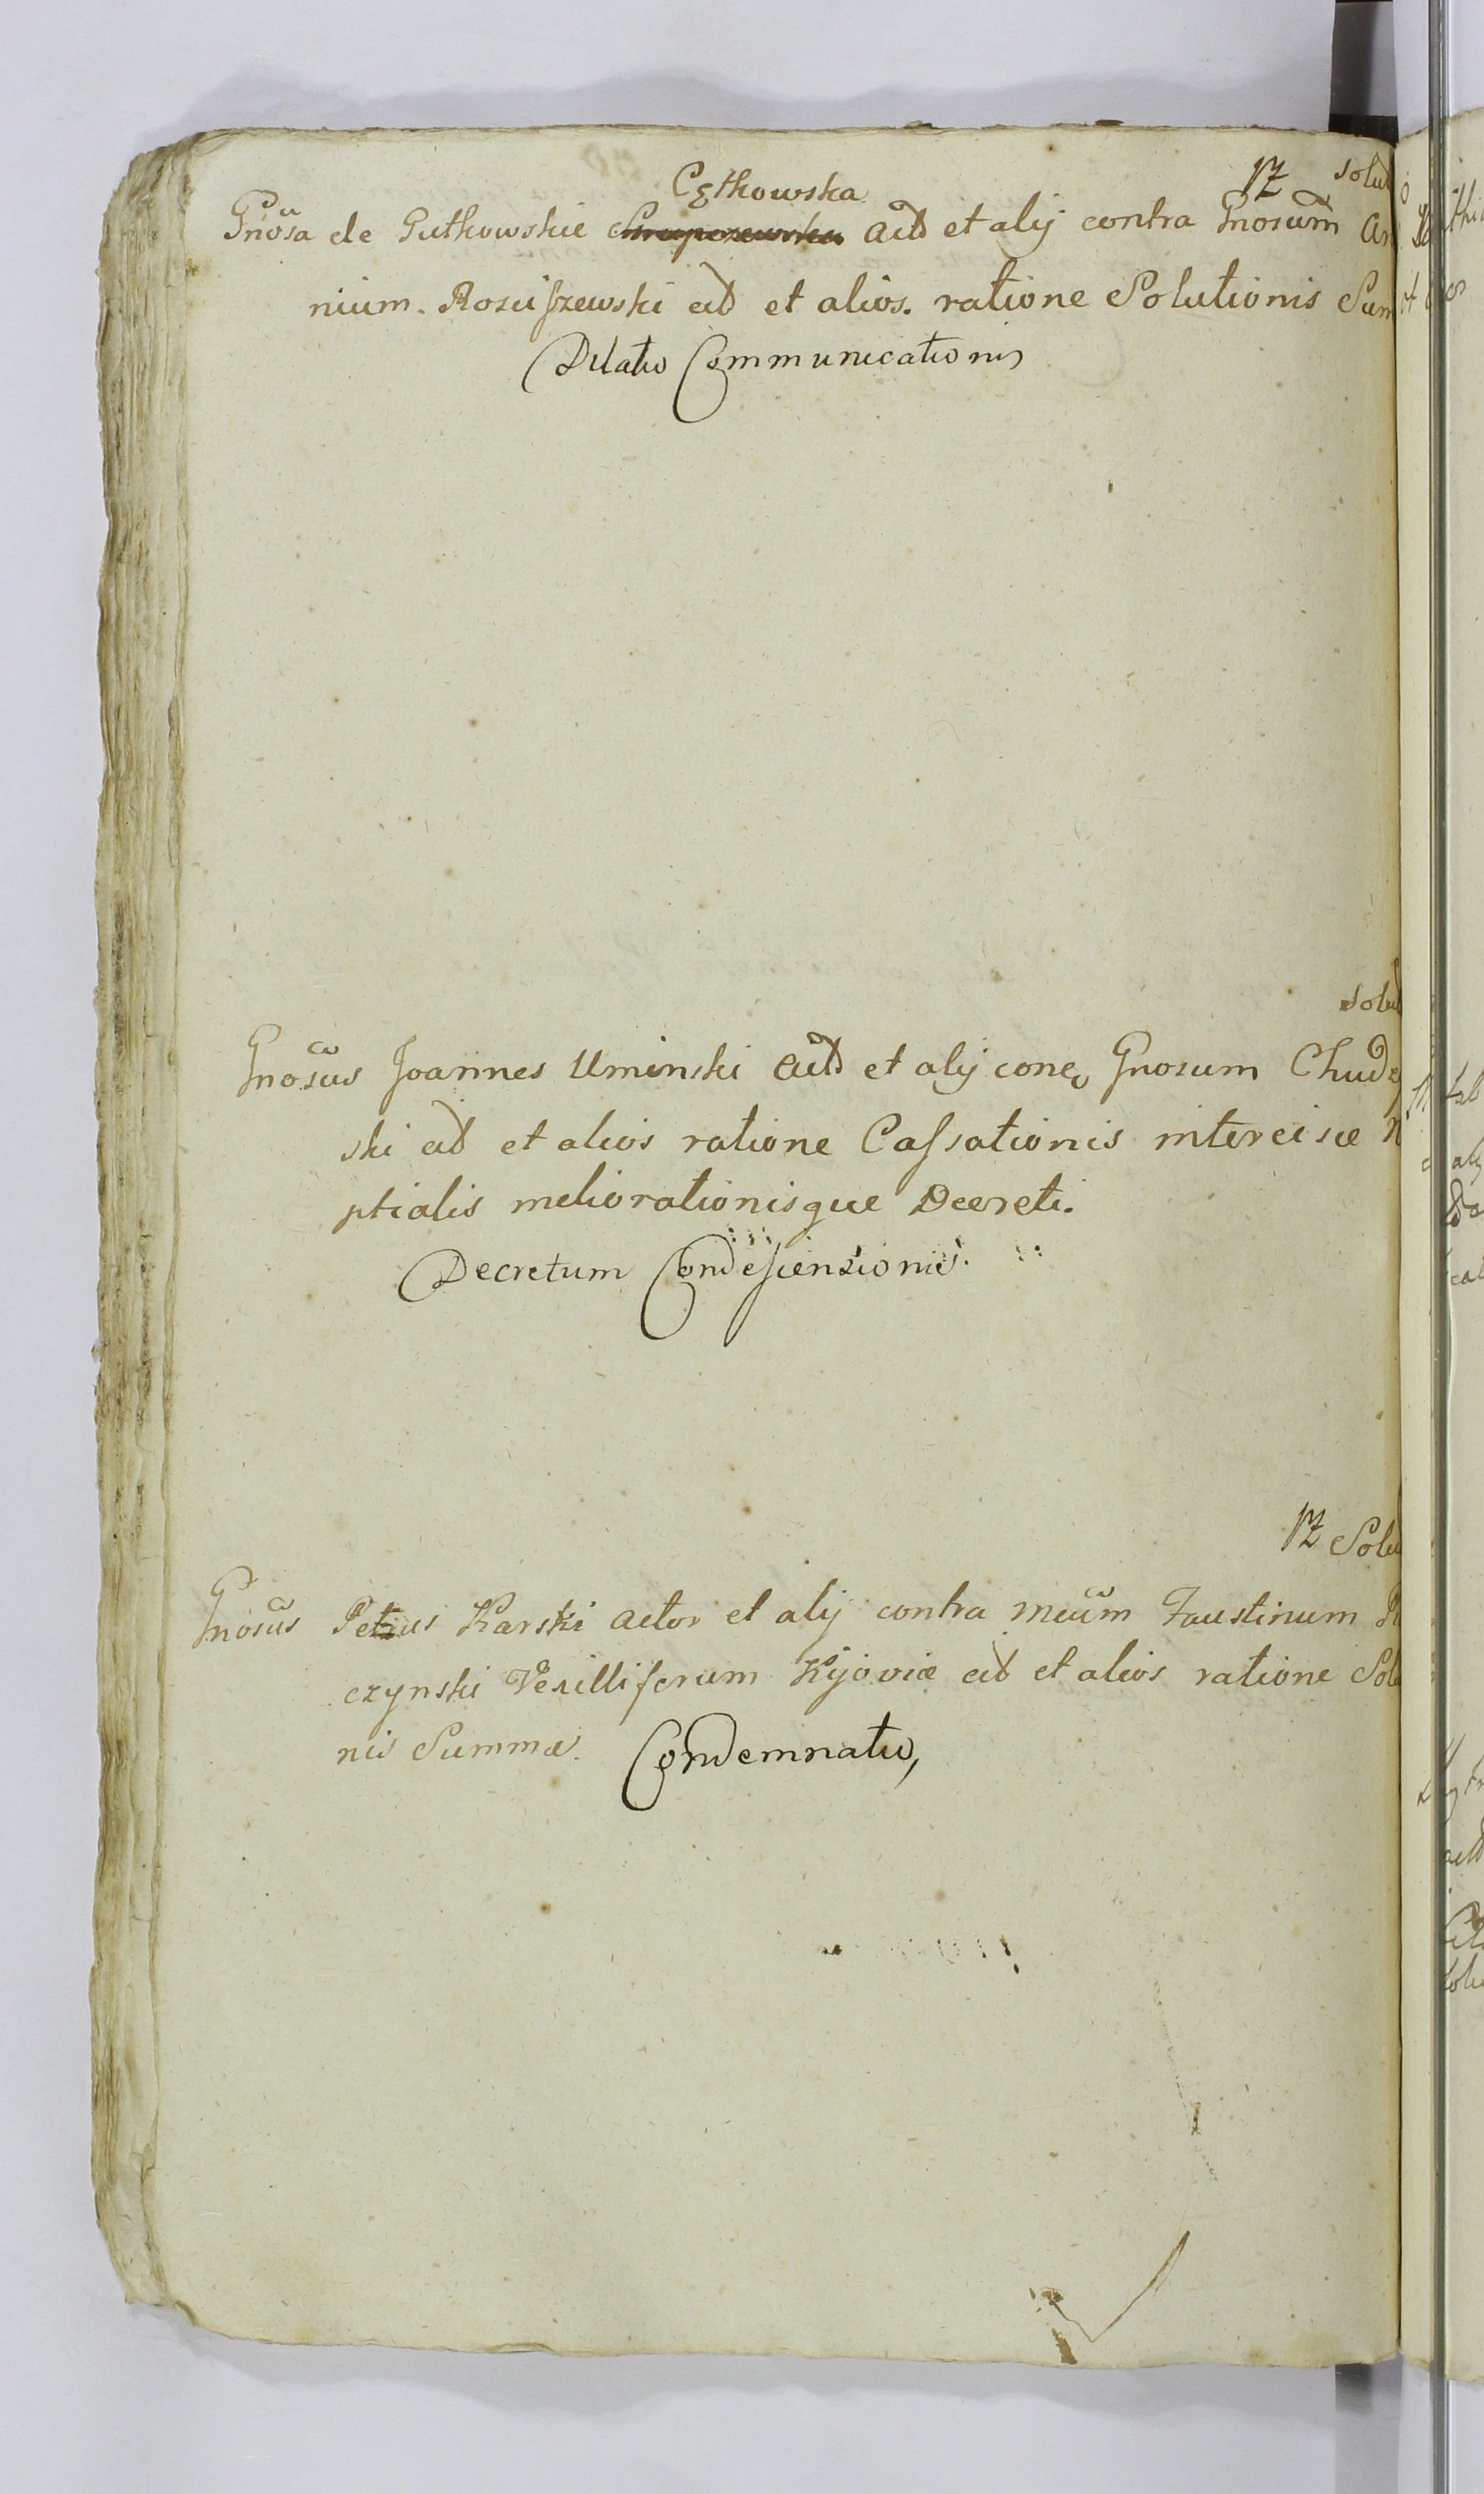 Cętkowska
solut
Gnosa de Gutkowskie actd et alij contra Gnosum An
nium. Rosciszewski citd et alios. ratione Solutionis Sum
Dilatio Communicationis
solut
Gnosus Joannes Uminski actd et alij conc Gnosum Chudz
ski citd et alios ratione Cassationis intercisæ N
ptialis meliorationisque Decreti.
Decretum Condescensionis.
Solut
Gnosus Petrus Karski actor et alij contra Mcum Faustinum
czynski Vexilliferum Kijoviæ citd et alios ratione Solu
nis Summæ. Condemnatio,